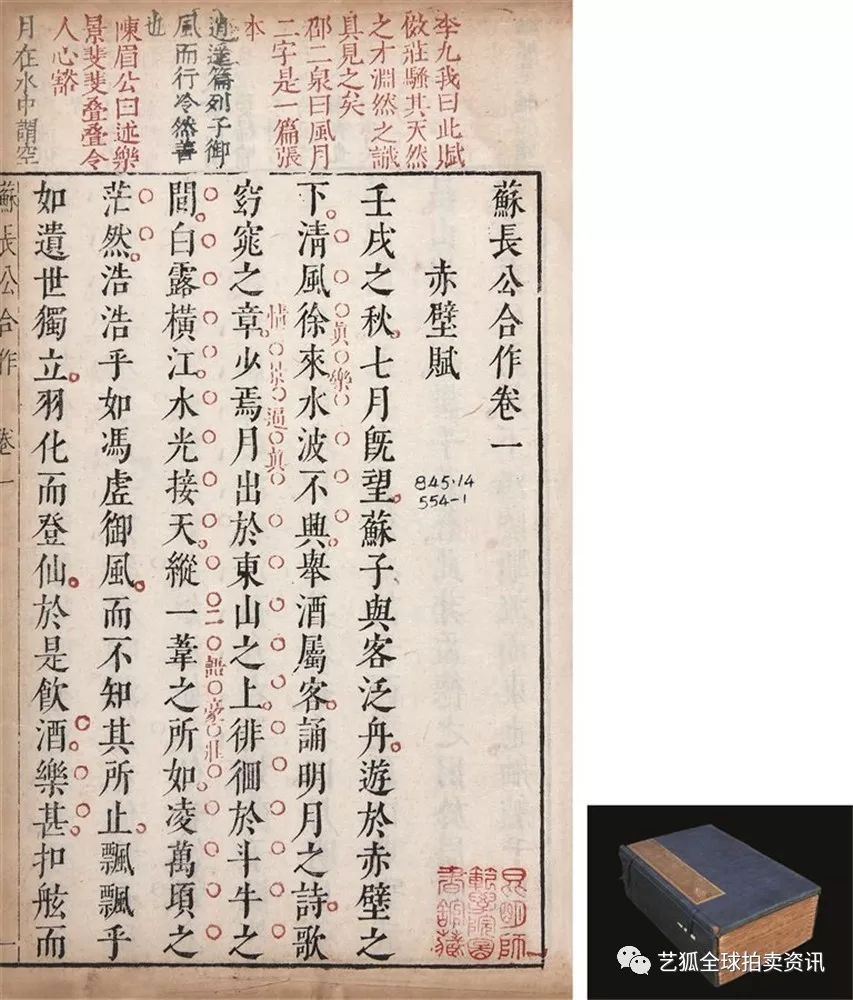 李九我曰此賦
倣莊騷其天然
之才淵然之識
具見之矣
邵二泉曰風月
二字是一篇張
本
逍遥篇列子御
風而行冷然善
也
陳眉公曰述樂
景斐斐叠叠令
人心豁
月在水中謂空
蘇長公合作卷一
赤壁賦
845·14
554-1
壬戌之秋七月旣望蘇子與客泛舟遊於赤壁之
下清風徐來水波不興舉酒屬客誦明月之詩歌
真樂
窈窕之章少焉月出於東山之上徘徊於斗牛之
情景逼真
間白露橫江水光接天縱一葦之所如凌萬頃之
二語豪壯
茫然浩浩乎如馮虛御風而不知其所止飄飄乎
如遺世獨立羽化而登仙於是飮酒樂甚扣舷而
蘇長公合作 卷一 一
昆明師
範學院圖
書館藏
艺狐全球拍卖资讯